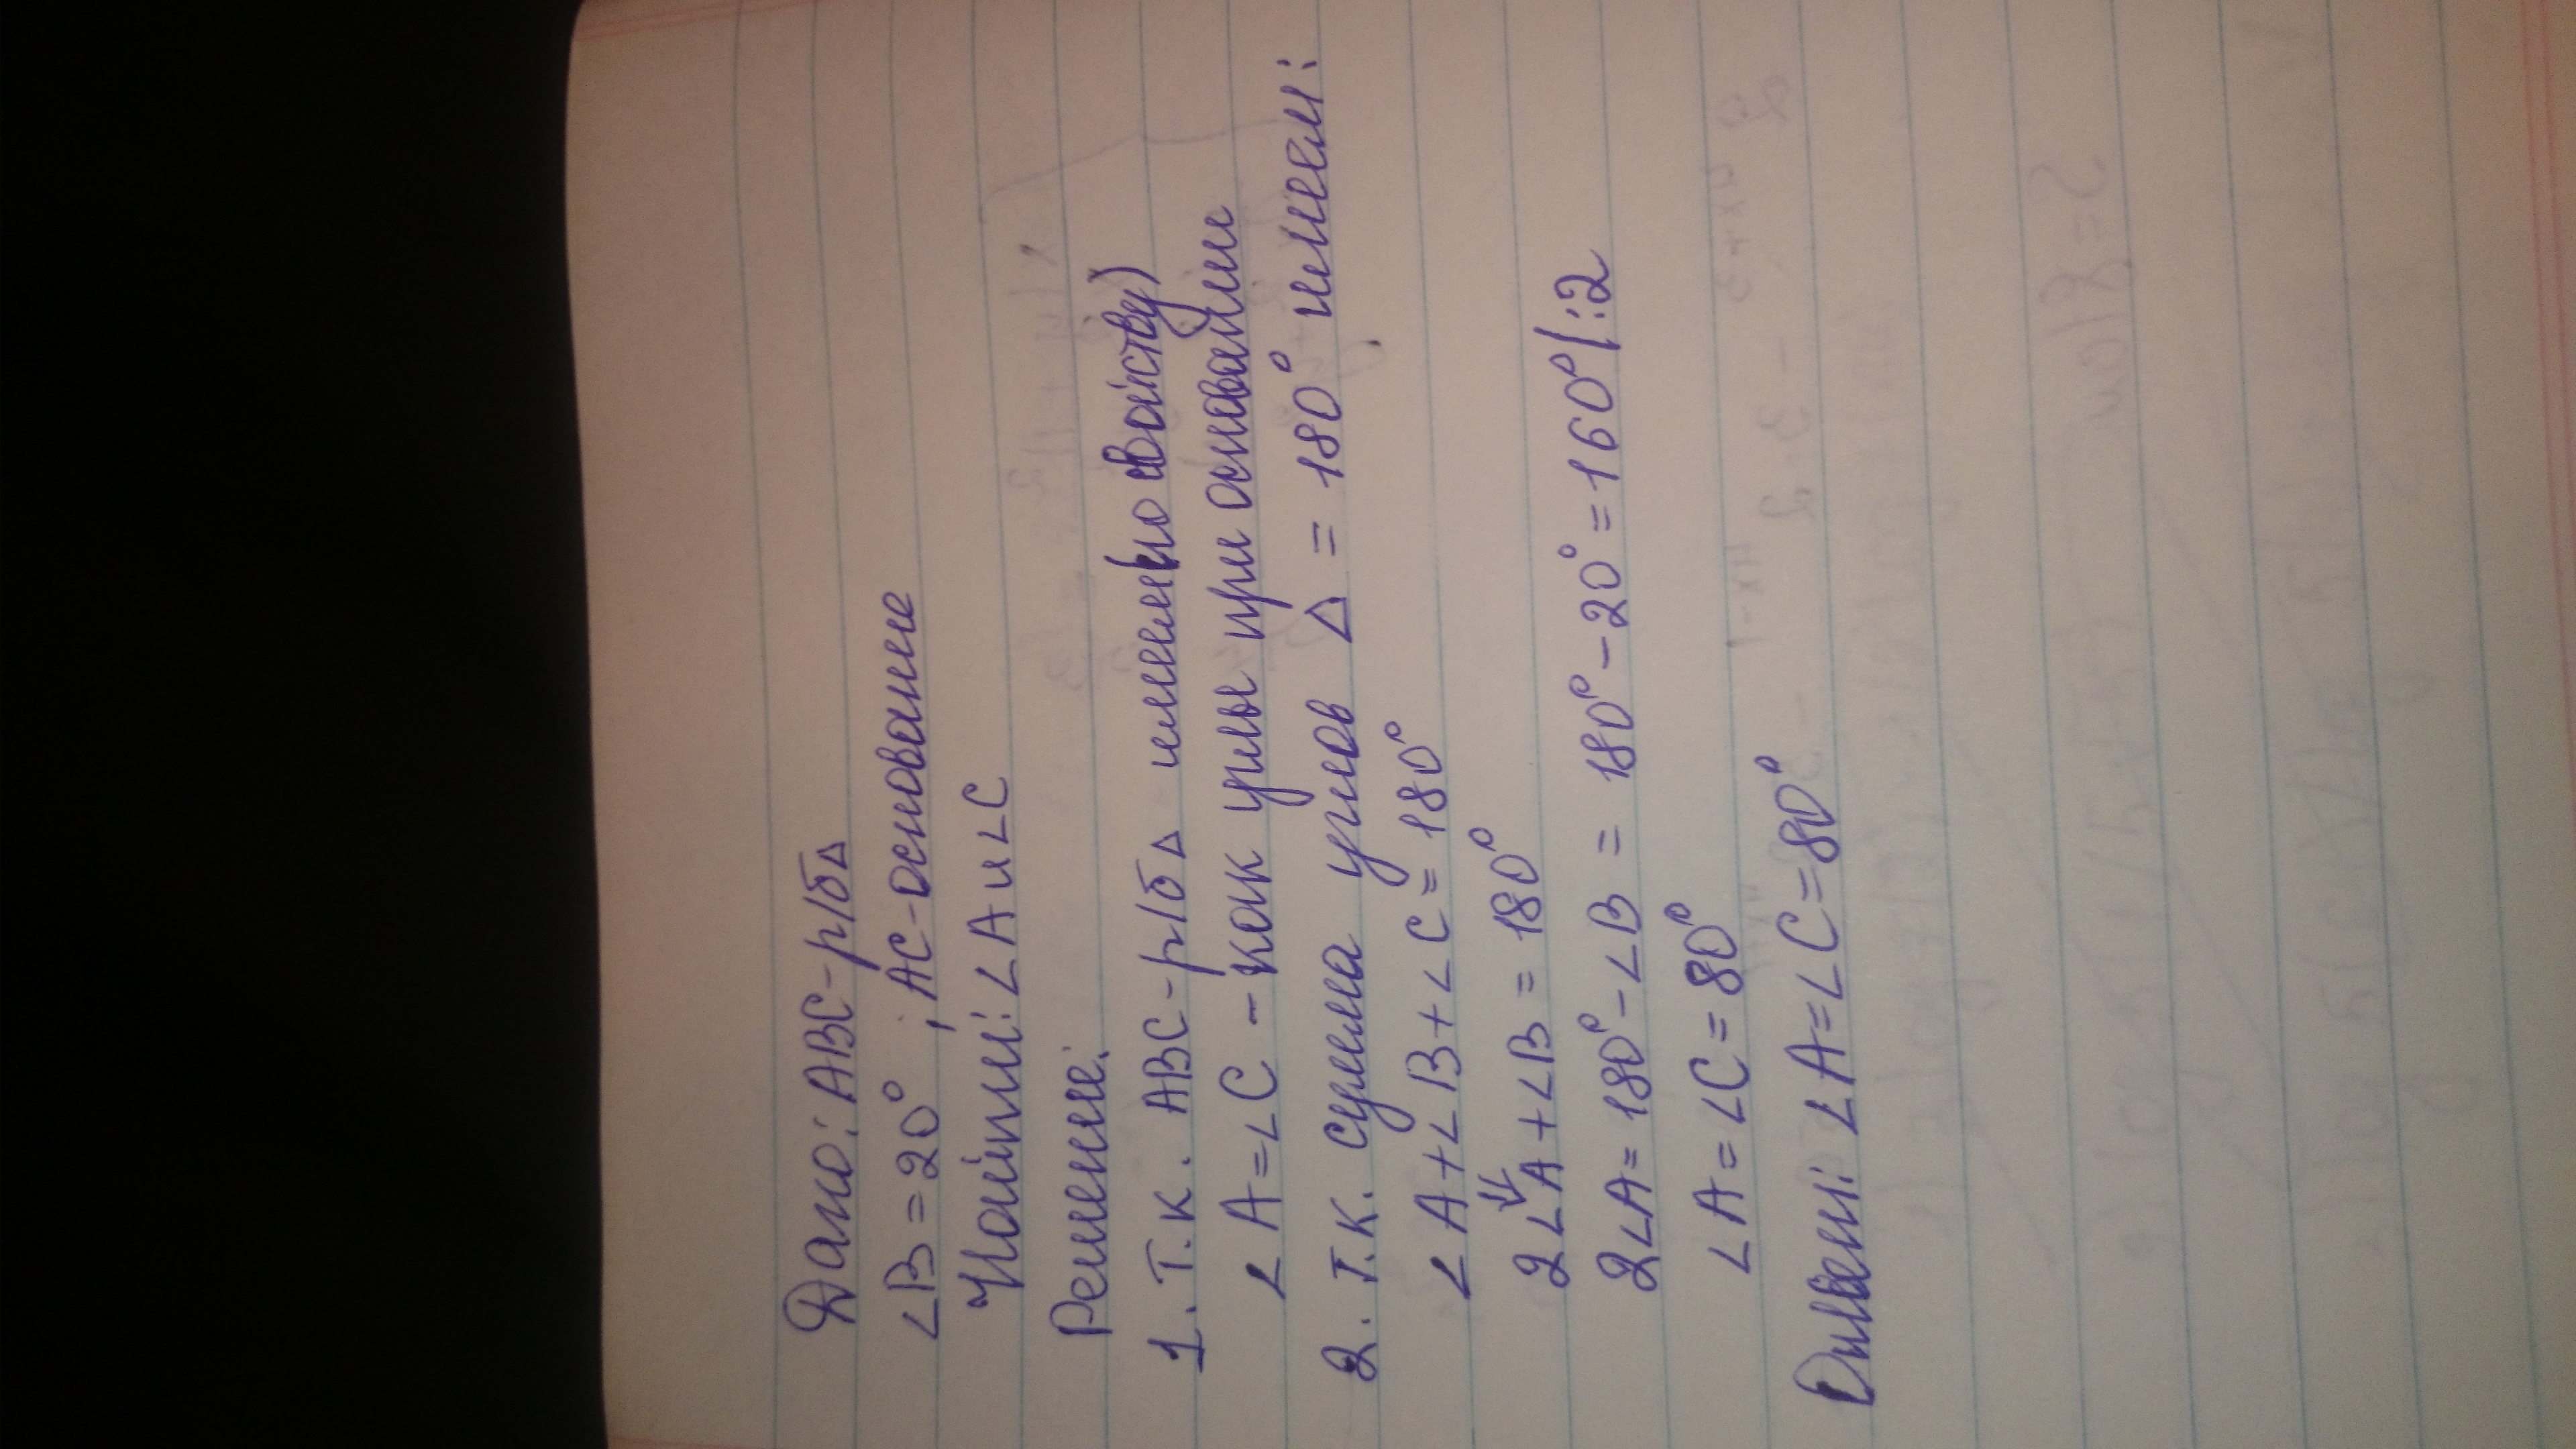 Дано: ABC - р/б△
∠B = 20° ; AC - основание
Найти: ∠A и ∠C
Решение:
1. Т.к. ABC - р/б △ имеем (по свойству)
∠A = ∠C - как углы при основании
2. Т.к. сумма углов △ = 180° имеем:
∠A + ∠B + ∠C = 180°
⇓
2∠A + ∠B = 180°
2∠A = 180° - ∠B = 180° - 20° = 160° | :2
∠A = ∠C = 80°
Ответ: ∠A = ∠C = 80°